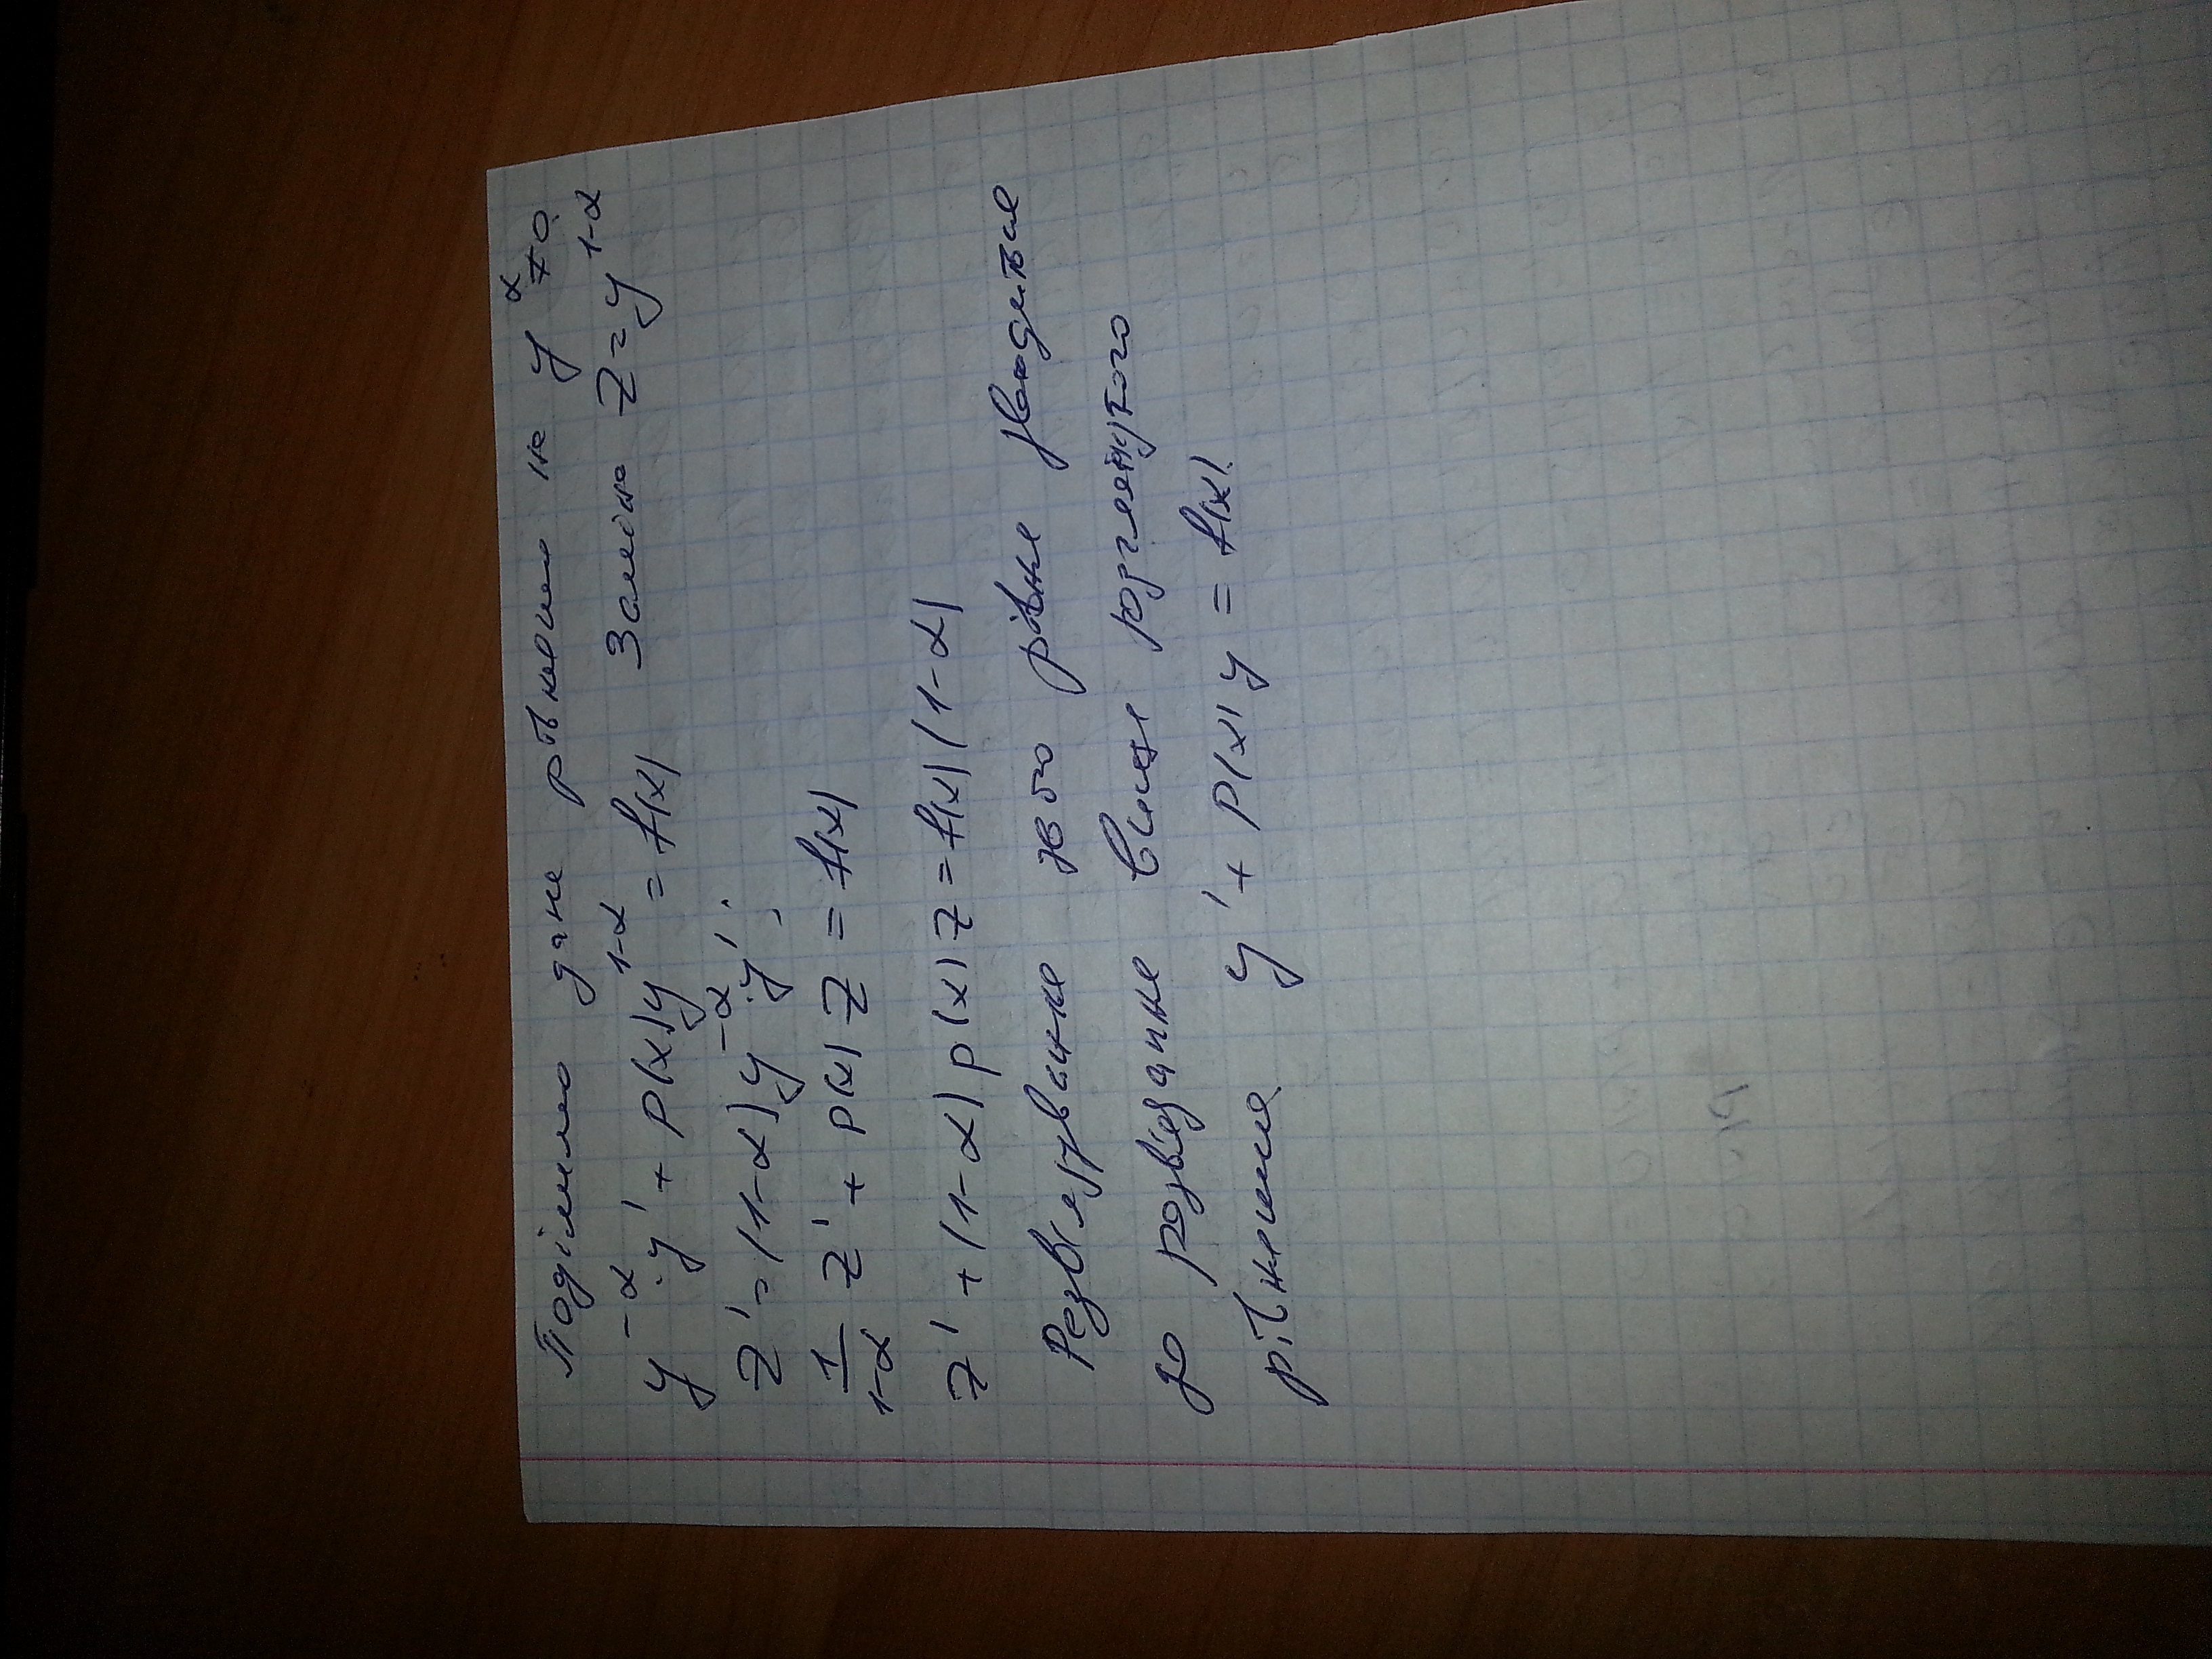 Поділимо дане рівняння на y^α ≠ 0.
y^{-α}·y' + p(x)y^{1-α} = f(x) Заміна z = y^{1-α}
z' = (1-α)y^{-α}·y';
\frac{1}{1-α} z' + p(x) z = f(x)
z' + (1-α) p(x) z = f(x)(1-α)
Розв'язування рівня зводиться
до розв'язання вище розглянутого
рівняння y' + p(x)y = f(x).